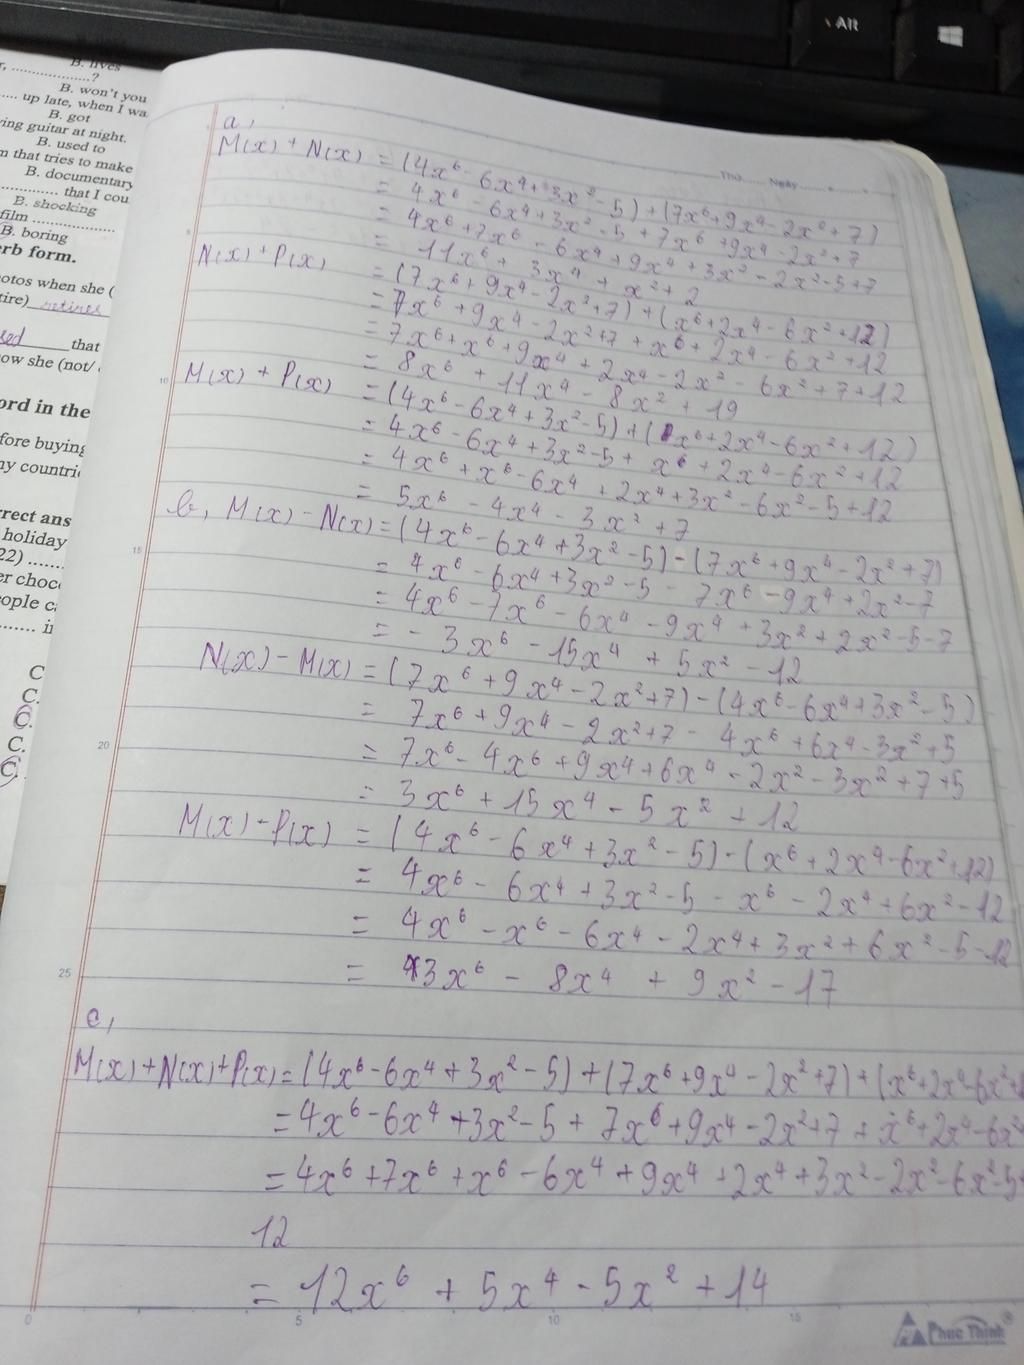 B. lives
...................?
B. won't you
.... up late, when I wa
B. got
ing guitar at night.
B. used to
m that tries to make
B. documentary
............ that I cou
B. shocking
film ...................
B. boring
erb form.
otos when she (
tire) retires
sed that
ow she (not/
ord in the
fore buying
ny countrie
rrect ans
holiday
22) .......
er choc
ople ca
....... i
C
C.
C.
C.
C.
Alt
Thứ Ngày
a,
M(x) + N(x) = (4x⁶ - 6x⁴ + 3x² - 5) + (7x⁶ + 9x⁴ - 2x⁶ + 7)
= 4x⁶ - 6x⁴ + 3x² - 5 + 7x⁶ + 9x⁴ - 2x² + 7
= 4x⁶ + 7x⁶ - 6x⁴ + 9x⁴ + 3x² - 2x² - 5 + 7
= 11x⁶ + 3x⁴ + x² + 2
N(x) + P(x) = (7x⁶ + 9x⁴ - 2x² + 7) + (x⁶ + 2x⁴ - 6x² + 12)
= 7x⁶ + 9x⁴ - 2x² + 7 + x⁶ + 2x⁴ - 6x² + 12
= 7x⁶ + x⁶ + 9x⁴ + 2x⁴ - 2x² - 6x² + 7 + 12
= 8x⁶ + 11x⁴ - 8x² + 19
10
M(x) + P(x) = (4x⁶ - 6x⁴ + 3x² - 5) + (x⁶ + 2x⁴ - 6x² + 12)
= 4x⁶ - 6x⁴ + 3x² - 5 + x⁶ + 2x⁴ - 6x² + 12
= 4x⁶ + x⁶ - 6x⁴ + 2x⁴ + 3x² - 6x² - 5 + 12
= 5x⁶ - 4x⁴ - 3x² + 7
b, M(x) - N(x) = (4x⁶ - 6x⁴ + 3x² - 5) - (7x⁶ + 9x⁴ - 2x² + 7)
15
= 4x⁶ - 6x⁴ + 3x² - 5 - 7x⁶ - 9x⁴ + 2x² - 7
= 4x⁶ - 7x⁶ - 6x⁴ - 9x⁴ + 3x² + 2x² - 5 - 7
= - 3x⁶ - 15x⁴ + 5x² - 12
N(x) - M(x) = (7x⁶ + 9x⁴ - 2x² + 7) - (4x⁶ - 6x⁴ + 3x² - 5)
= 7x⁶ + 9x⁴ - 2x² + 7 - 4x⁶ + 6x⁴ - 3x² + 5
20
= 7x⁶ - 4x⁶ + 9x⁴ + 6x⁴ - 2x² - 3x² + 7 + 5
= 3x⁶ + 15x⁴ - 5x² + 12
M(x) - P(x) = (4x⁶ - 6x⁴ + 3x² - 5) - (x⁶ + 2x⁴ - 6x² + 12)
= 4x⁶ - 6x⁴ + 3x² - 5 - x⁶ - 2x⁴ + 6x² - 12
= 4x⁶ - x⁶ - 6x⁴ - 2x⁴ + 3x² + 6x² - 5 - 12
25
= 3x⁶ - 8x⁴ + 9x² - 17
c,
M(x) + N(x) + P(x) = (4x⁶ - 6x⁴ + 3x² - 5) + (7x⁶ + 9x⁴ - 2x² + 7) + (x⁶ + 2x⁴ - 6x² +
= 4x⁶ - 6x⁴ + 3x² - 5 + 7x⁶ + 9x⁴ - 2x² + 7 + x⁶ + 2x⁴ - 6x²
= 4x⁶ + 7x⁶ + x⁶ - 6x⁴ + 9x⁴ + 2x⁴ + 3x² - 2x² - 6x² - 5
12
= 12x⁶ + 5x⁴ - 5x² + 14
0 5 10 15
Phuc Thinh